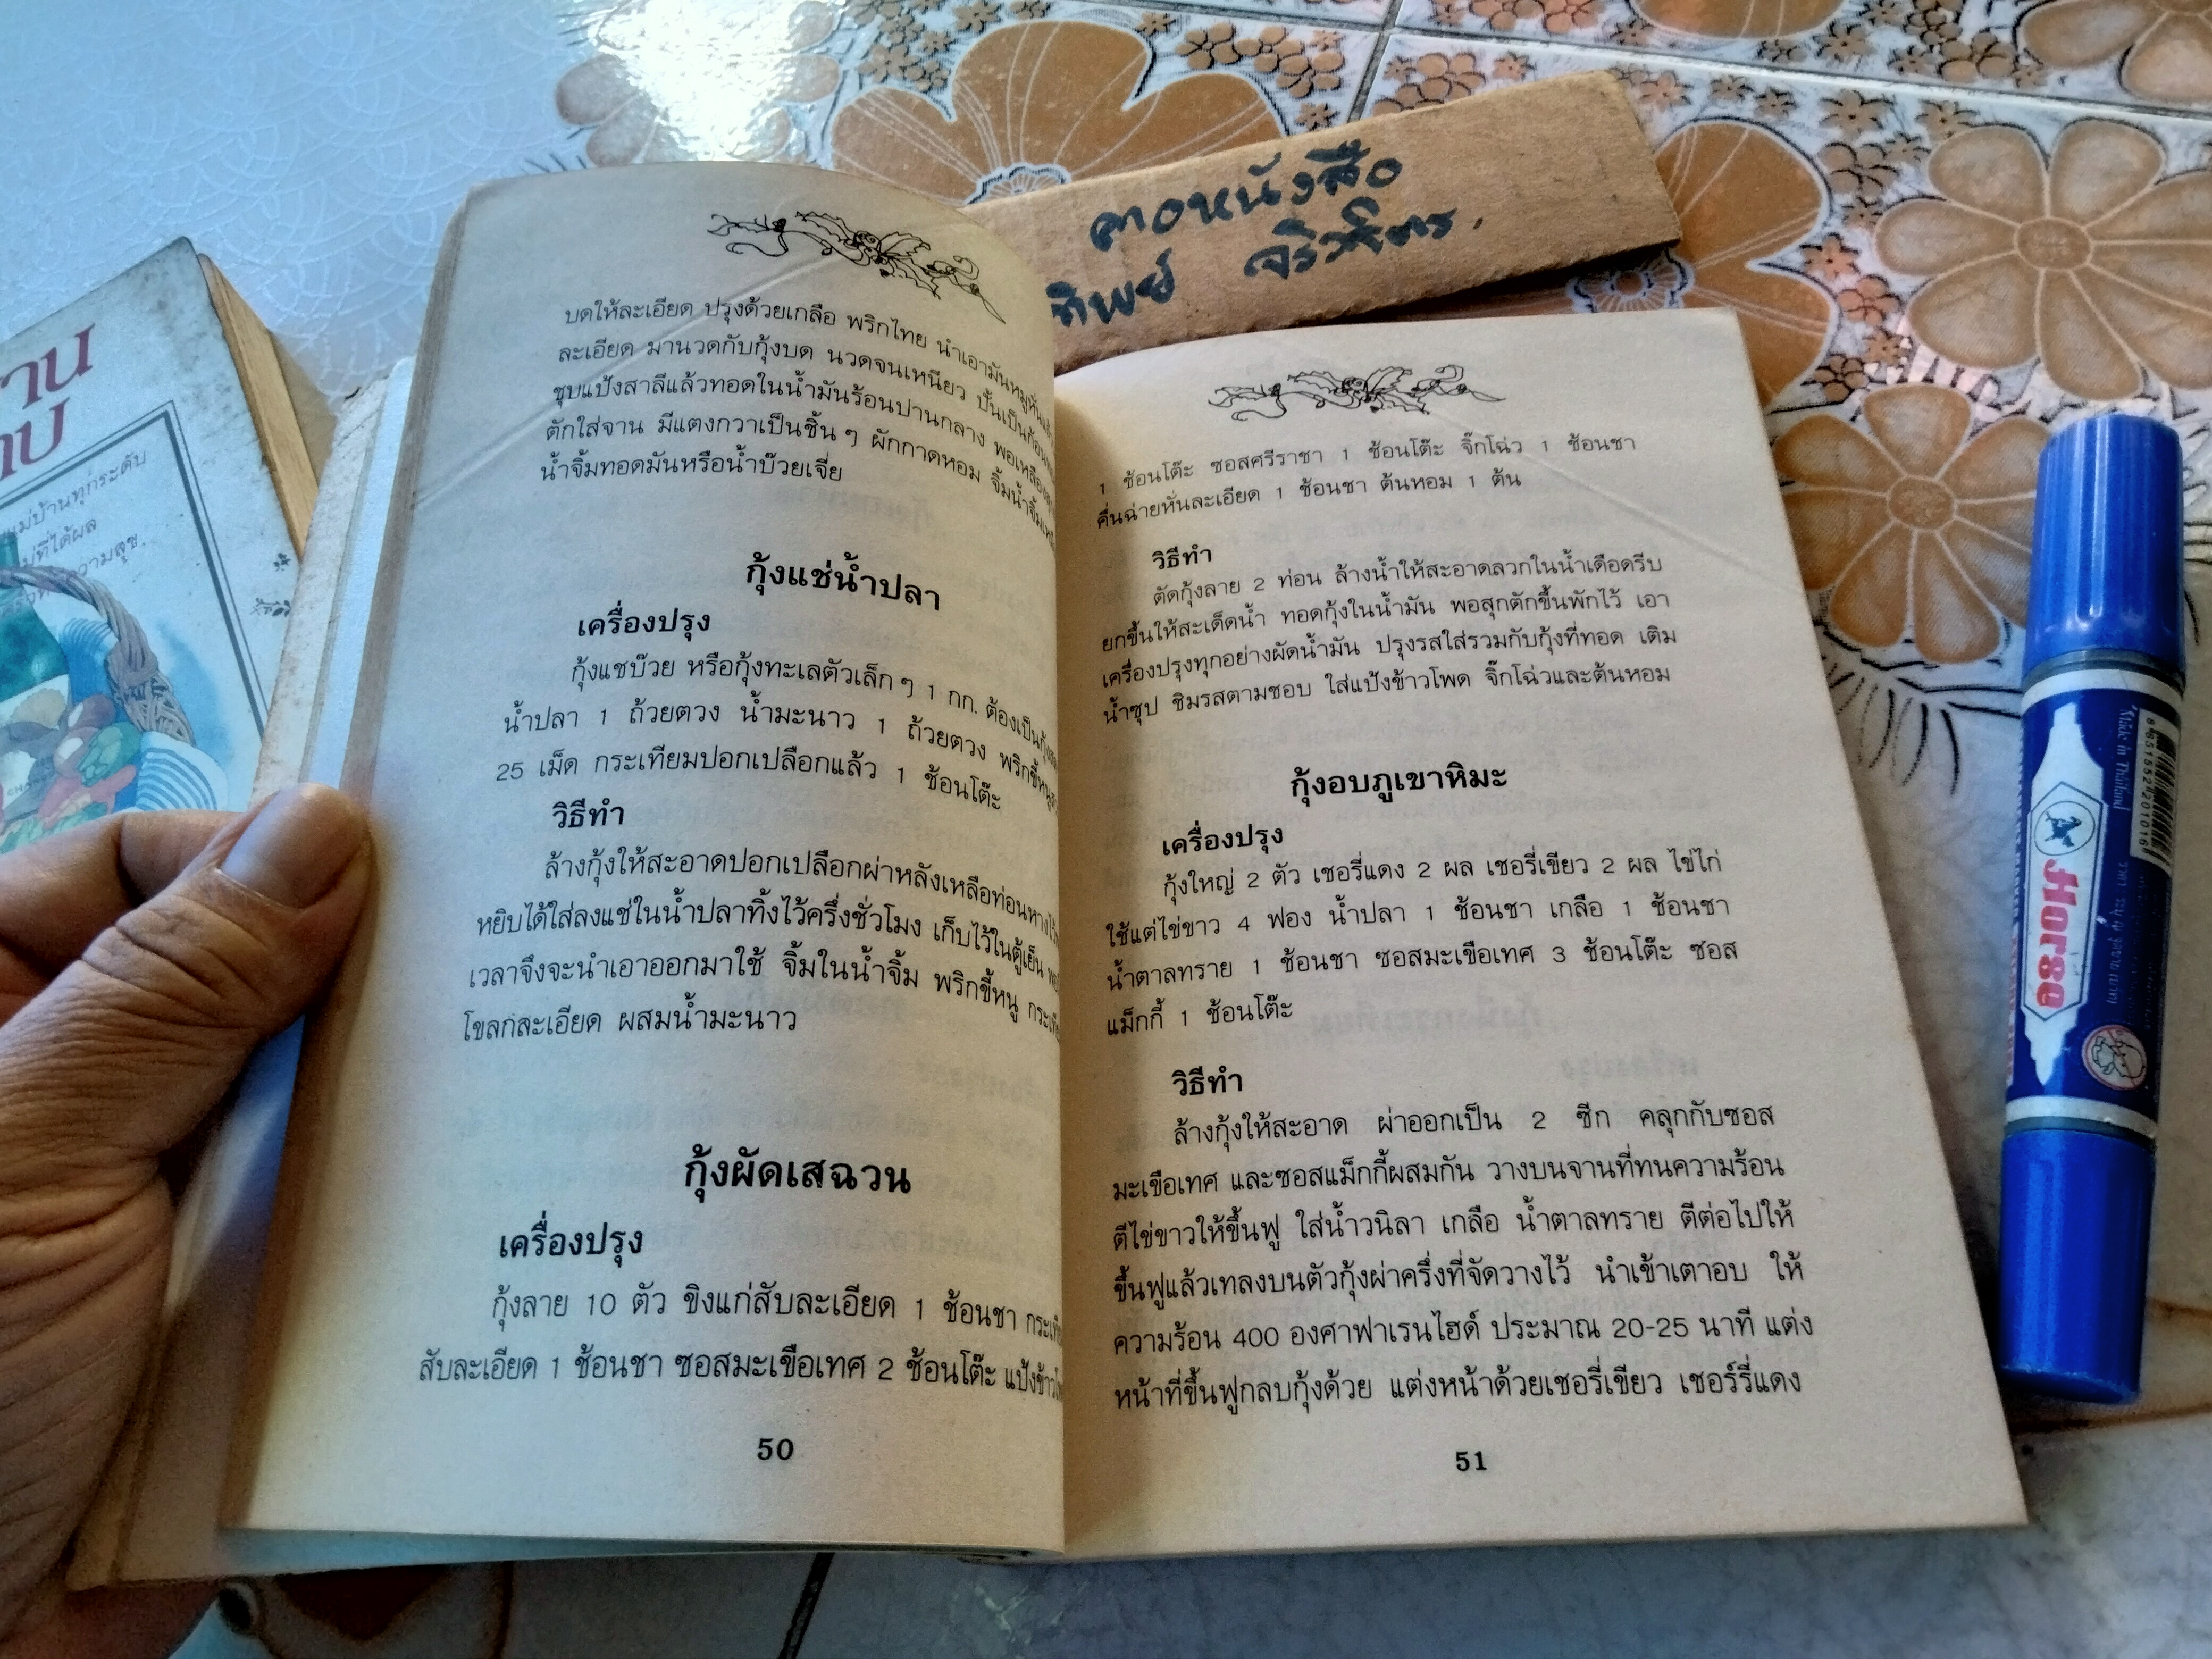 บดให้ละเอียด ปรุงด้วยเกลือ พริกไทย นำเอามันหมูหั่น
ละเอียด มานวดกับกุ้งบด นวดจนเหนียว ปั้นเป็นก้อน
ชุบแป้งสาลีแล้วทอดในน้ำมันร้อนปานกลาง พอเหลือง
ตักใส่จาน มีแตงกวาเป็นชิ้น ๆ ผักกาดหอม จิ้มน้ำจิ้ม
น้ำจิ้มทอดมันหรือน้ำบ๊วยเจี่ย
กุ้งแช่น้ำปลา
เครื่องปรุง
กุ้งแชบ๊วย หรือกุ้งทะเลตัวเล็ก ๆ 1 กก. ต้องเป็น
น้ำปลา 1 ถ้วยตวง น้ำมะนาว 1 ถ้วยตวง พริกขี้หนู
25 เม็ด กระเทียมปอกเปลือกแล้ว 1 ช้อนโต๊ะ
วิธีทำ
ล้างกุ้งให้สะอาดปอกเปลือกผ่าหลังเหลือท่อนหางไว้
หยิบได้ใส่ลงแช่ในน้ำปลาทิ้งไว้ครึ่งชั่วโมง เก็บไว้ในตู้เย็น
เวลาจึงจะนำเอาออกมาใช้ จิ้มในน้ำจิ้ม พริกขี้หนู
โขลกละเอียด ผสมน้ำมะนาว
กุ้งผัดเสฉวน
เครื่องปรุง
กุ้งลาย 10 ตัว ขิงแก่สับละเอียด 1 ช้อนชา
สับละเอียด 1 ช้อนชา ซอสมะเขือเทศ 2 ช้อนโต๊ะ
50
1 ช้อนโต๊ะ ซอสศรีราชา 1 ช้อนโต๊ะ จิ๊กโฉ่ว 1 ช้อนชา
คื่นฉ่ายหั่นละเอียด 1 ช้อนชา ต้นหอม 1 ต้น
วิธีทำ
ตัดกุ้งลาย 2 ท่อน ล้างน้ำให้สะอาดลวกในน้ำเดือดรีบ
ยกขึ้นให้สะเด็ดน้ำ ทอดกุ้งในน้ำมัน พอสุกตักขึ้นพักไว้ เอา
เครื่องปรุงทุกอย่างผัดน้ำมัน ปรุงรสใส่รวมกับกุ้งที่ทอด เติม
น้ำซุป ชิมรสตามชอบ ใส่แป้งข้าวโพด จิ๊กโฉ่วและต้นหอม
กุ้งอบภูเขาหิมะ
เครื่องปรุง
กุ้งใหญ่ 2 ตัว เชอรี่แดง 2 ผล เชอรี่เขียว 2 ผล ไข่ไก่
ใช้แต่ไข่ขาว 4 ฟอง น้ำปลา 1 ช้อนชา เกลือ 1 ช้อนชา
น้ำตาลทราย 1 ช้อนชา ซอสมะเขือเทศ 3 ช้อนโต๊ะ ซอส
แม็กกี้ 1 ช้อนโต๊ะ
วิธีทำ
ล้างกุ้งให้สะอาด ผ่าออกเป็น 2 ซีก คลุกกับซอส
มะเขือเทศ และซอสแม็กกี้ผสมกัน วางบนจานที่ทนความร้อน
ตีไข่ขาวให้ขึ้นฟู ใส่น้ำวนิลา เกลือ น้ำตาลทราย ตีต่อไปให้
ขึ้นฟูแล้วเทลงบนตัวกุ้งผ่าครึ่งที่จัดวางไว้ นำเข้าเตาอบ ให้
ความร้อน 400 องศาฟาเรนไฮด์ ประมาณ 20-25 นาที แต่ง
หน้าที่ขึ้นฟูกลบกุ้งด้วย แต่งหน้าด้วยเชอรี่เขียว เชอร์รี่แดง
51
แม่บ้านทุกระดับ
ที่ได้ผล
ความสุข.
Horse
Made in Thailand
8851552201016